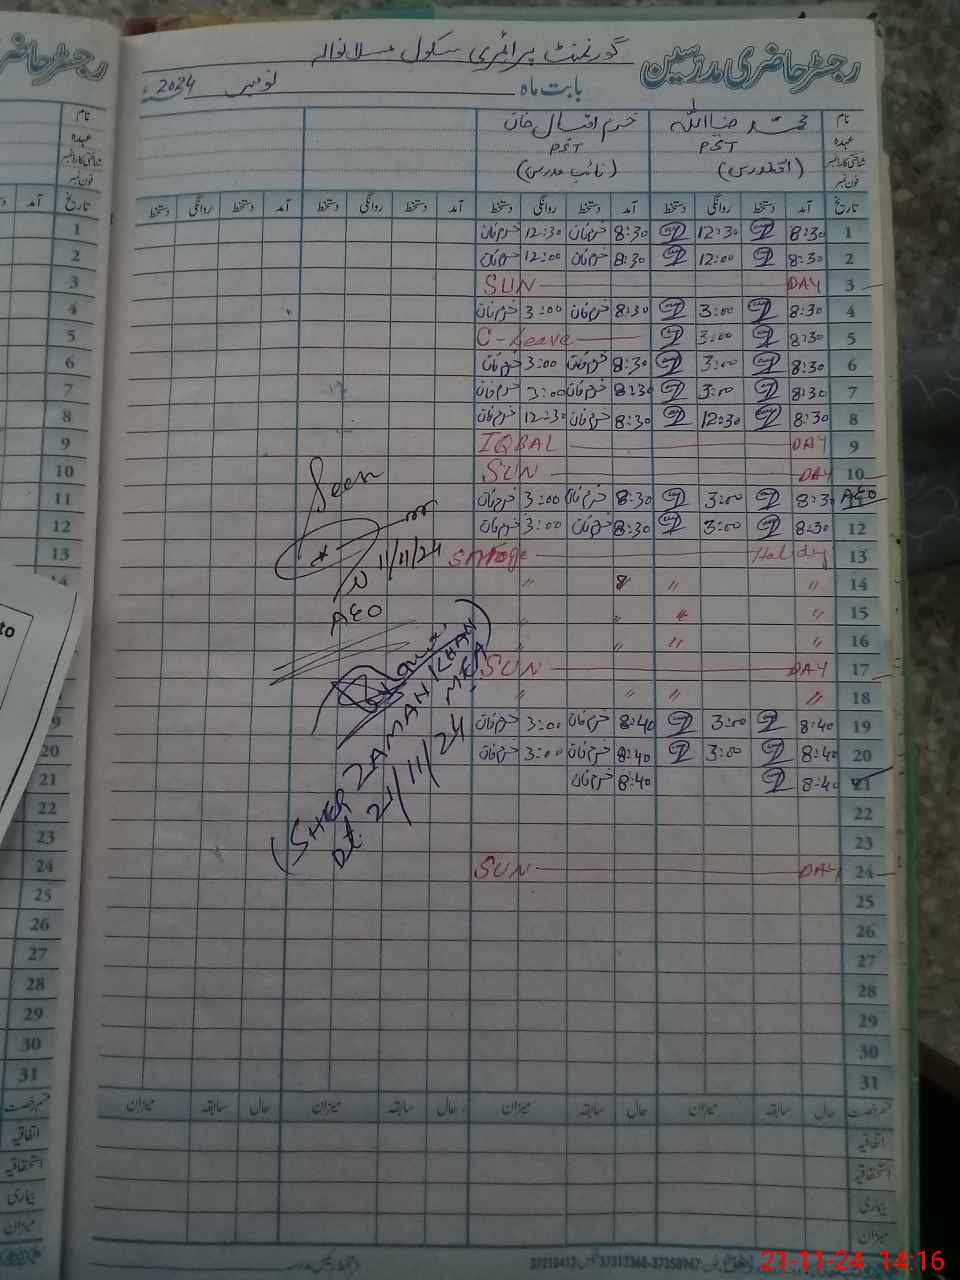 رجسٹر حاضری مدرسین
گورنمنٹ پرائمری سکول
بابت ماہ نومبر 2024ء
نام محمد ضیاءاللہ خرم اقبال خان
عہدہ PST PST
شناختی کارڈ نمبر
فون نمبر (نائب مدرس)
تاریخ آمد دستخط روانگی دستخط آمد دستخط روانگی دستخط آمد دستخط روانگی دستخط آمد دستخط روانگی دستخط
1 8:30 12:30 8:30 خرم خان 12:30 خرم خان
2 8:30 12:00 8:30 خرم خان 12:00 خرم خان
3 SUN DAY
4 8:30 3:00 8:30 خرم خان 3:00 خرم خان
5 8:30 3:00 C-Leave
6 8:30 3:00 8:30 خرم خان 3:00 خرم خان
7 8:30 3:00 8:30 خرم خان 3:00 خرم خان
8 8:30 12:30 8:30 خرم خان 12:30 خرم خان
9 IQBAL DAY
10 SUN DAY
11 AEO 8:30 3:00 8:30 خرم خان 3:00 خرم خان
12 8:30 3:00 8:30 خرم خان 3:00 خرم خان
13 Smoge Holiday
14 " " " "
15 " " " "
16 " " " "
17 SUN DAY
18 " " " "
19 8:40 3:00 8:40 خرم خان 3:00 خرم خان
20 8:40 3:00 8:40 خرم خان 3:00 خرم خان
21 8:40 8:40 خرم خان
22
23
24 SUN DAY
25
26
27
28
29
30
31
Seen
11/11/24
AEO
(SHER ZAMAN KHAN)
MEA
Dt. 21/11/24
قسم رخصت حال سابقہ میزان حال سابقہ میزان حال سابقہ میزان حال سابقہ میزان
اتفاقیہ
استحقاقیہ
بیماری
میزان
دستخط رئیس مدرسہ
37210412 37312368-37358947
رجسٹر حاضر
آمد تاریخ
19
20
21
22
23
24
25
26
27
28
29
30
31
قسم رخصت
اتفاقیہ
استحقاقیہ
بیماری
میزان
to
21-11-24 14:16